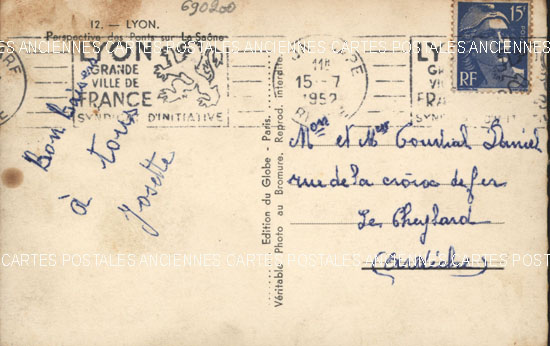 690200
12. — LYON.
Perspective des Ponts sur La Saône
LYON
GRANDE
VILLE DE
FRANCE
SYNDICAT D'INITIATIVE
GARE
11H
15 -7
1952
RHONE
15F
RF
CARTES POSTALES ANCIENNES CARTES POSTALES ANCIENNES CARTES POSTALES ANCIENNES
Bon Baisers
à tous
Josette
Edition du Globe - Paris.
Véritable Photo au Bromure. Reprod. Interdite
Mon et Mme Daniel
rue de la croix de fer
Le Cheylard
(Ardèche)
CARTES POSTALES ANCIENNES CARTES POSTALES ANCIENNES CARTES POSTALES ANCIENNES